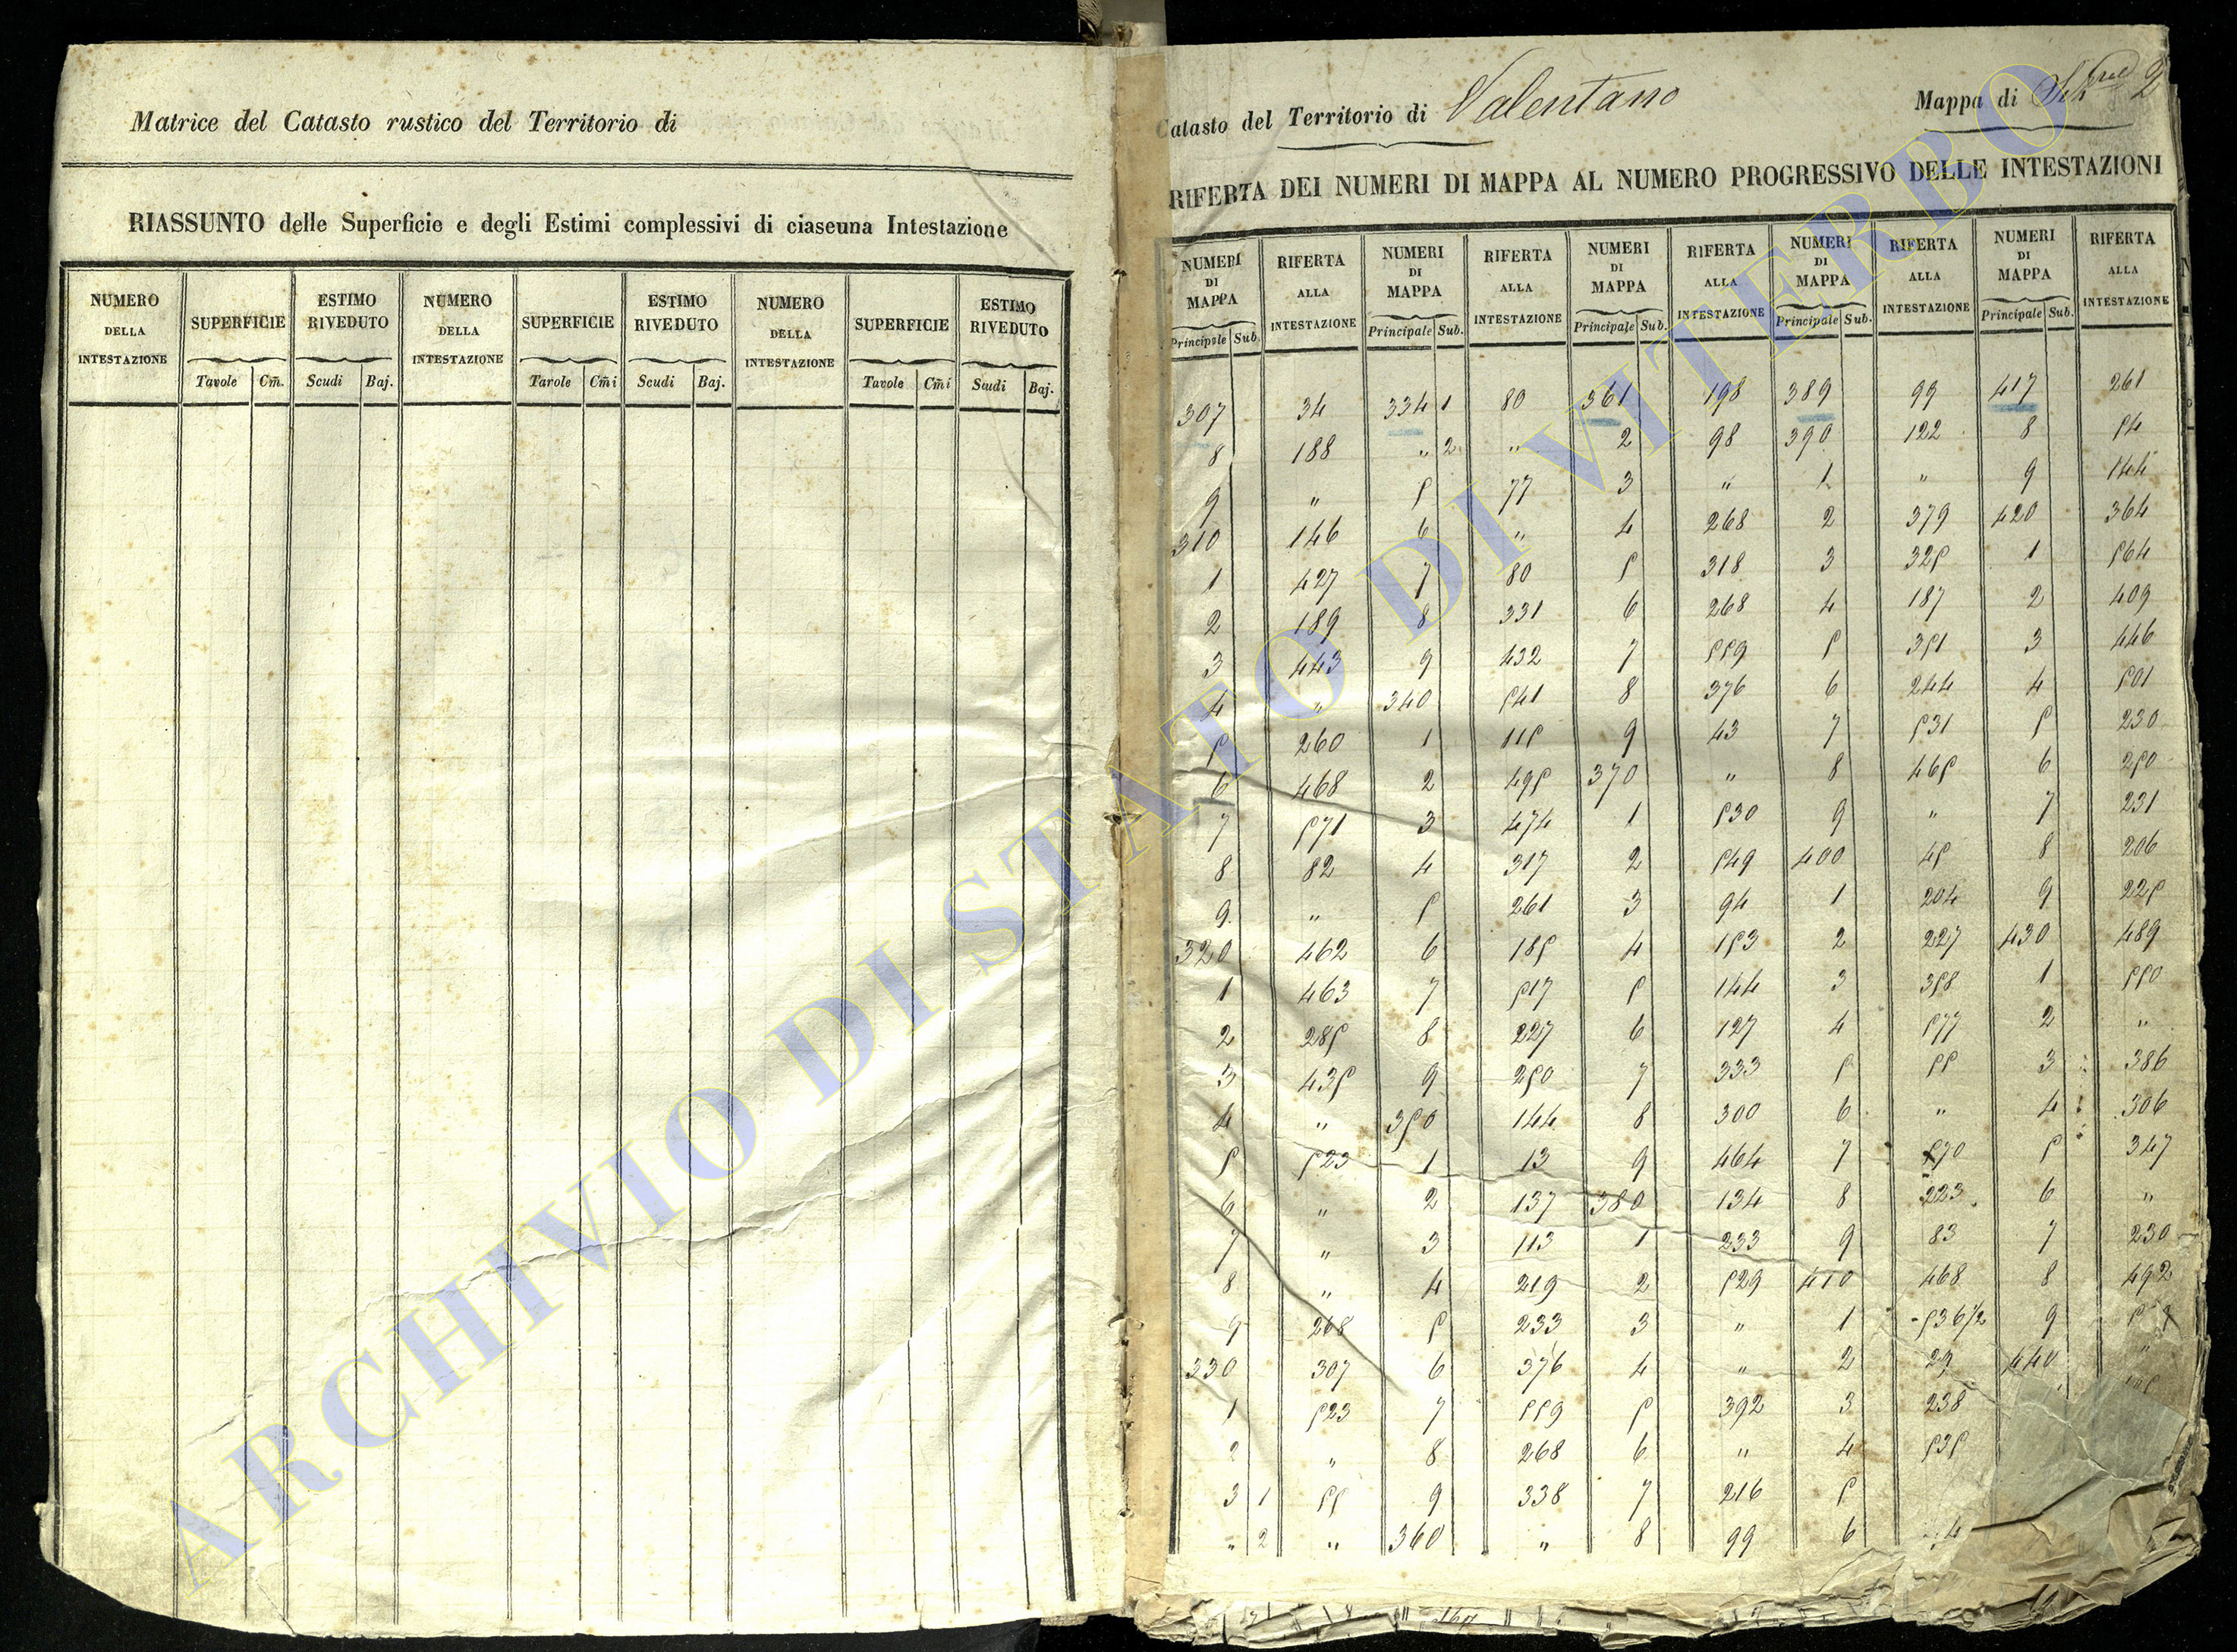 Matrice del Catasto rustico del Territorio di
RIASSUNTO delle Superficie e degli Estimi complessivi di ciascuna Intestazione
NUMERO DELLA INTESTAZIONE SUPERFICIE ESTIMO RIVEDUTO NUMERO DELLA INTESTAZIONE SUPERFICIE ESTIMO RIVEDUTO NUMERO DELLA INTESTAZIONE SUPERFICIE ESTIMO RIVEDUTO
Tavole Cm̃. Scudi Baj. Tavole Cm̃i Scudi Baj. Tavole Cm̃i Scudi Baj.
Catasto del Territorio di Valentano Mappa di 2
RIFERTA DEI NUMERI DI MAPPA AL NUMERO PROGRESSIVO DELLE INTESTAZIONI
NUMERI DI MAPPA RIFERTA ALLA INTESTAZIONE NUMERI DI MAPPA RIFERTA ALLA INTESTAZIONE NUMERI DI MAPPA RIFERTA ALLA INTESTAZIONE NUMERI DI MAPPA RIFERTA ALLA INTESTAZIONE NUMERI DI MAPPA RIFERTA ALLA INTESTAZIONE
Principale Sub. Principale Sub. Principale Sub. Principale Sub. Principale Sub.
307 34 334 1 80 361 198 389 99 417 261
8 188 " 2 " 2 98 390 122 8 54
9 " 5 77 3 " 1 " 9 144
310 146 6 " 4 268 2 379 420 364
1 427 7 80 5 318 3 325 1 564
2 189 8 331 6 268 4 187 2 409
3 443 9 432 7 559 5 351 3 446
4 " 340 541 8 376 6 244 4 501
5 260 1 115 9 43 7 531 5 230
6 468 2 495 370 " 8 465 6 250
7 571 3 474 1 530 9 " 7 231
8 82 4 317 2 549 400 45 8 206
9 " 5 261 3 94 1 204 9 225
320 462 6 185 4 153 2 227 430 489
1 463 7 517 5 144 3 358 1 550
2 285 8 227 6 127 4 577 2 "
3 435 9 250 7 333 5 55 3 386
4 " 350 144 8 300 6 " 4 306
5 523 1 13 9 464 7 570 5 347
6 " 2 137 380 134 8 223 6 "
7 " 3 113 1 233 9 83 7 230
8 " 4 219 2 529 410 468 8 492
9 268 5 233 3 " 1 536 1/2 9
330 307 6 376 4 " 2 29 440 "
1 523 7 559 5 392 3 238
2 " 8 268 6 " 4 535
3 1 55 9 338 7 216 5
" 2 " 360 " 8 99 6
ARCHIVIO DI STATO DI VITERBO